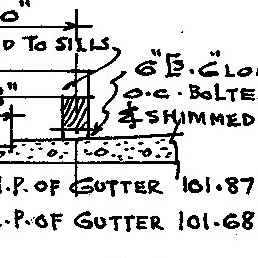 0"
D TO SILLS
6" [. C" LO
O.C. BOLTE
& SHIMMED
"
.P. OF GUTTER 101.87
.P. OF GUTTER 101.68